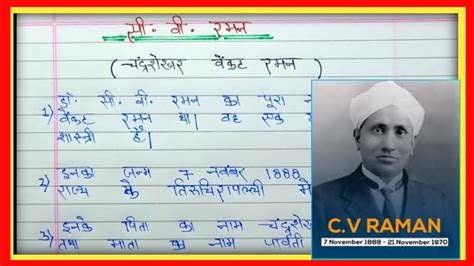 सी. वी. रमन
(चंद्रशेखर वेंकट रमन)
1) डॉ. सी. वी. रमन का पूरा
वेंकट रमन था। वह एक
शास्त्री है।
2) इनका जन्म 7 नवंबर 1888
राज्य के तिरुचिरापल्ली में
3) इनके पिता का नाम चंद्रशे
तथा माता का नाम पार्वती
C.V RAMAN
7 November 1888 - 21 November 1970